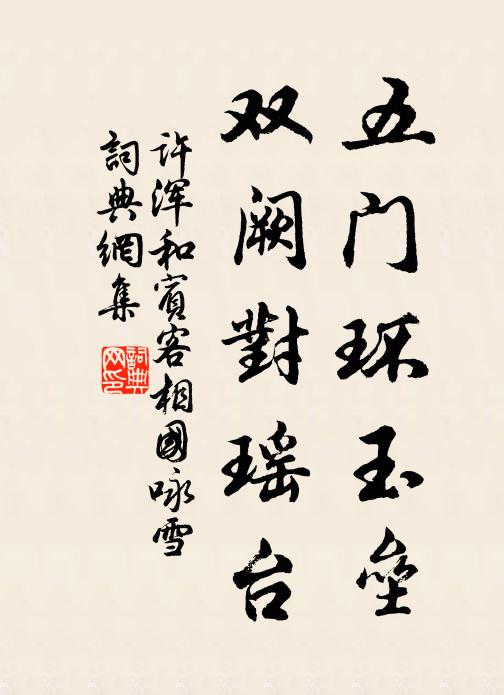 五门环玉垒
双阙對瑶台
许浑和賓客相國咏雪
詞典網集
詞典
网印